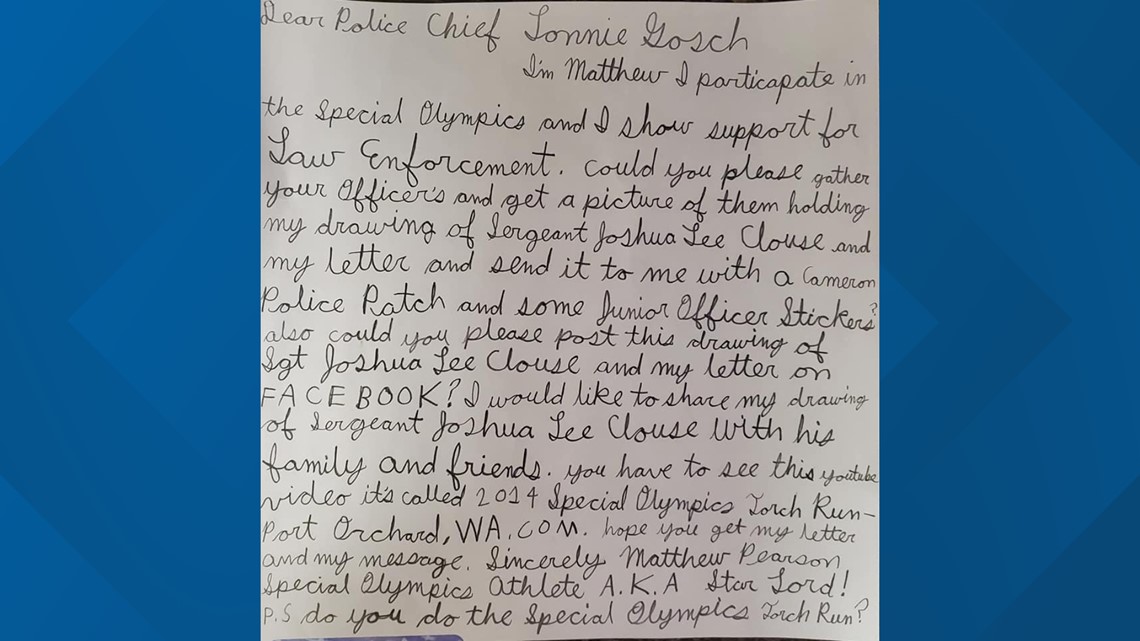 Dear Police Chief Lonnie Gosch
I'm Matthew I particapate in
the Special Olympics and I show support for
Law Enforcement. Could you please gather
your Officer's and get a picture of them holding
my drawing of Sergeant Joshua Lee Clouse and
my letter and send it to me with a Cameron
Police Patch and some Junior Officer Stickers?
also could you please post this drawing of
Sgt Joshua Lee Clouse and my letter on
FACEBOOK? I would like to share my drawing
of Sergeant Joshua Lee Clouse with his
family and friends. you have to see this youtube
video it's called 2014 Special Olympics Torch Run-
Port Orchard, WA.COM. hope you get my letter
and my message. Sincerely Matthew Pearson
Special Olympics Athlete A.K.A Star Lord!
P.S do you do the Special Olympics Torch Run?